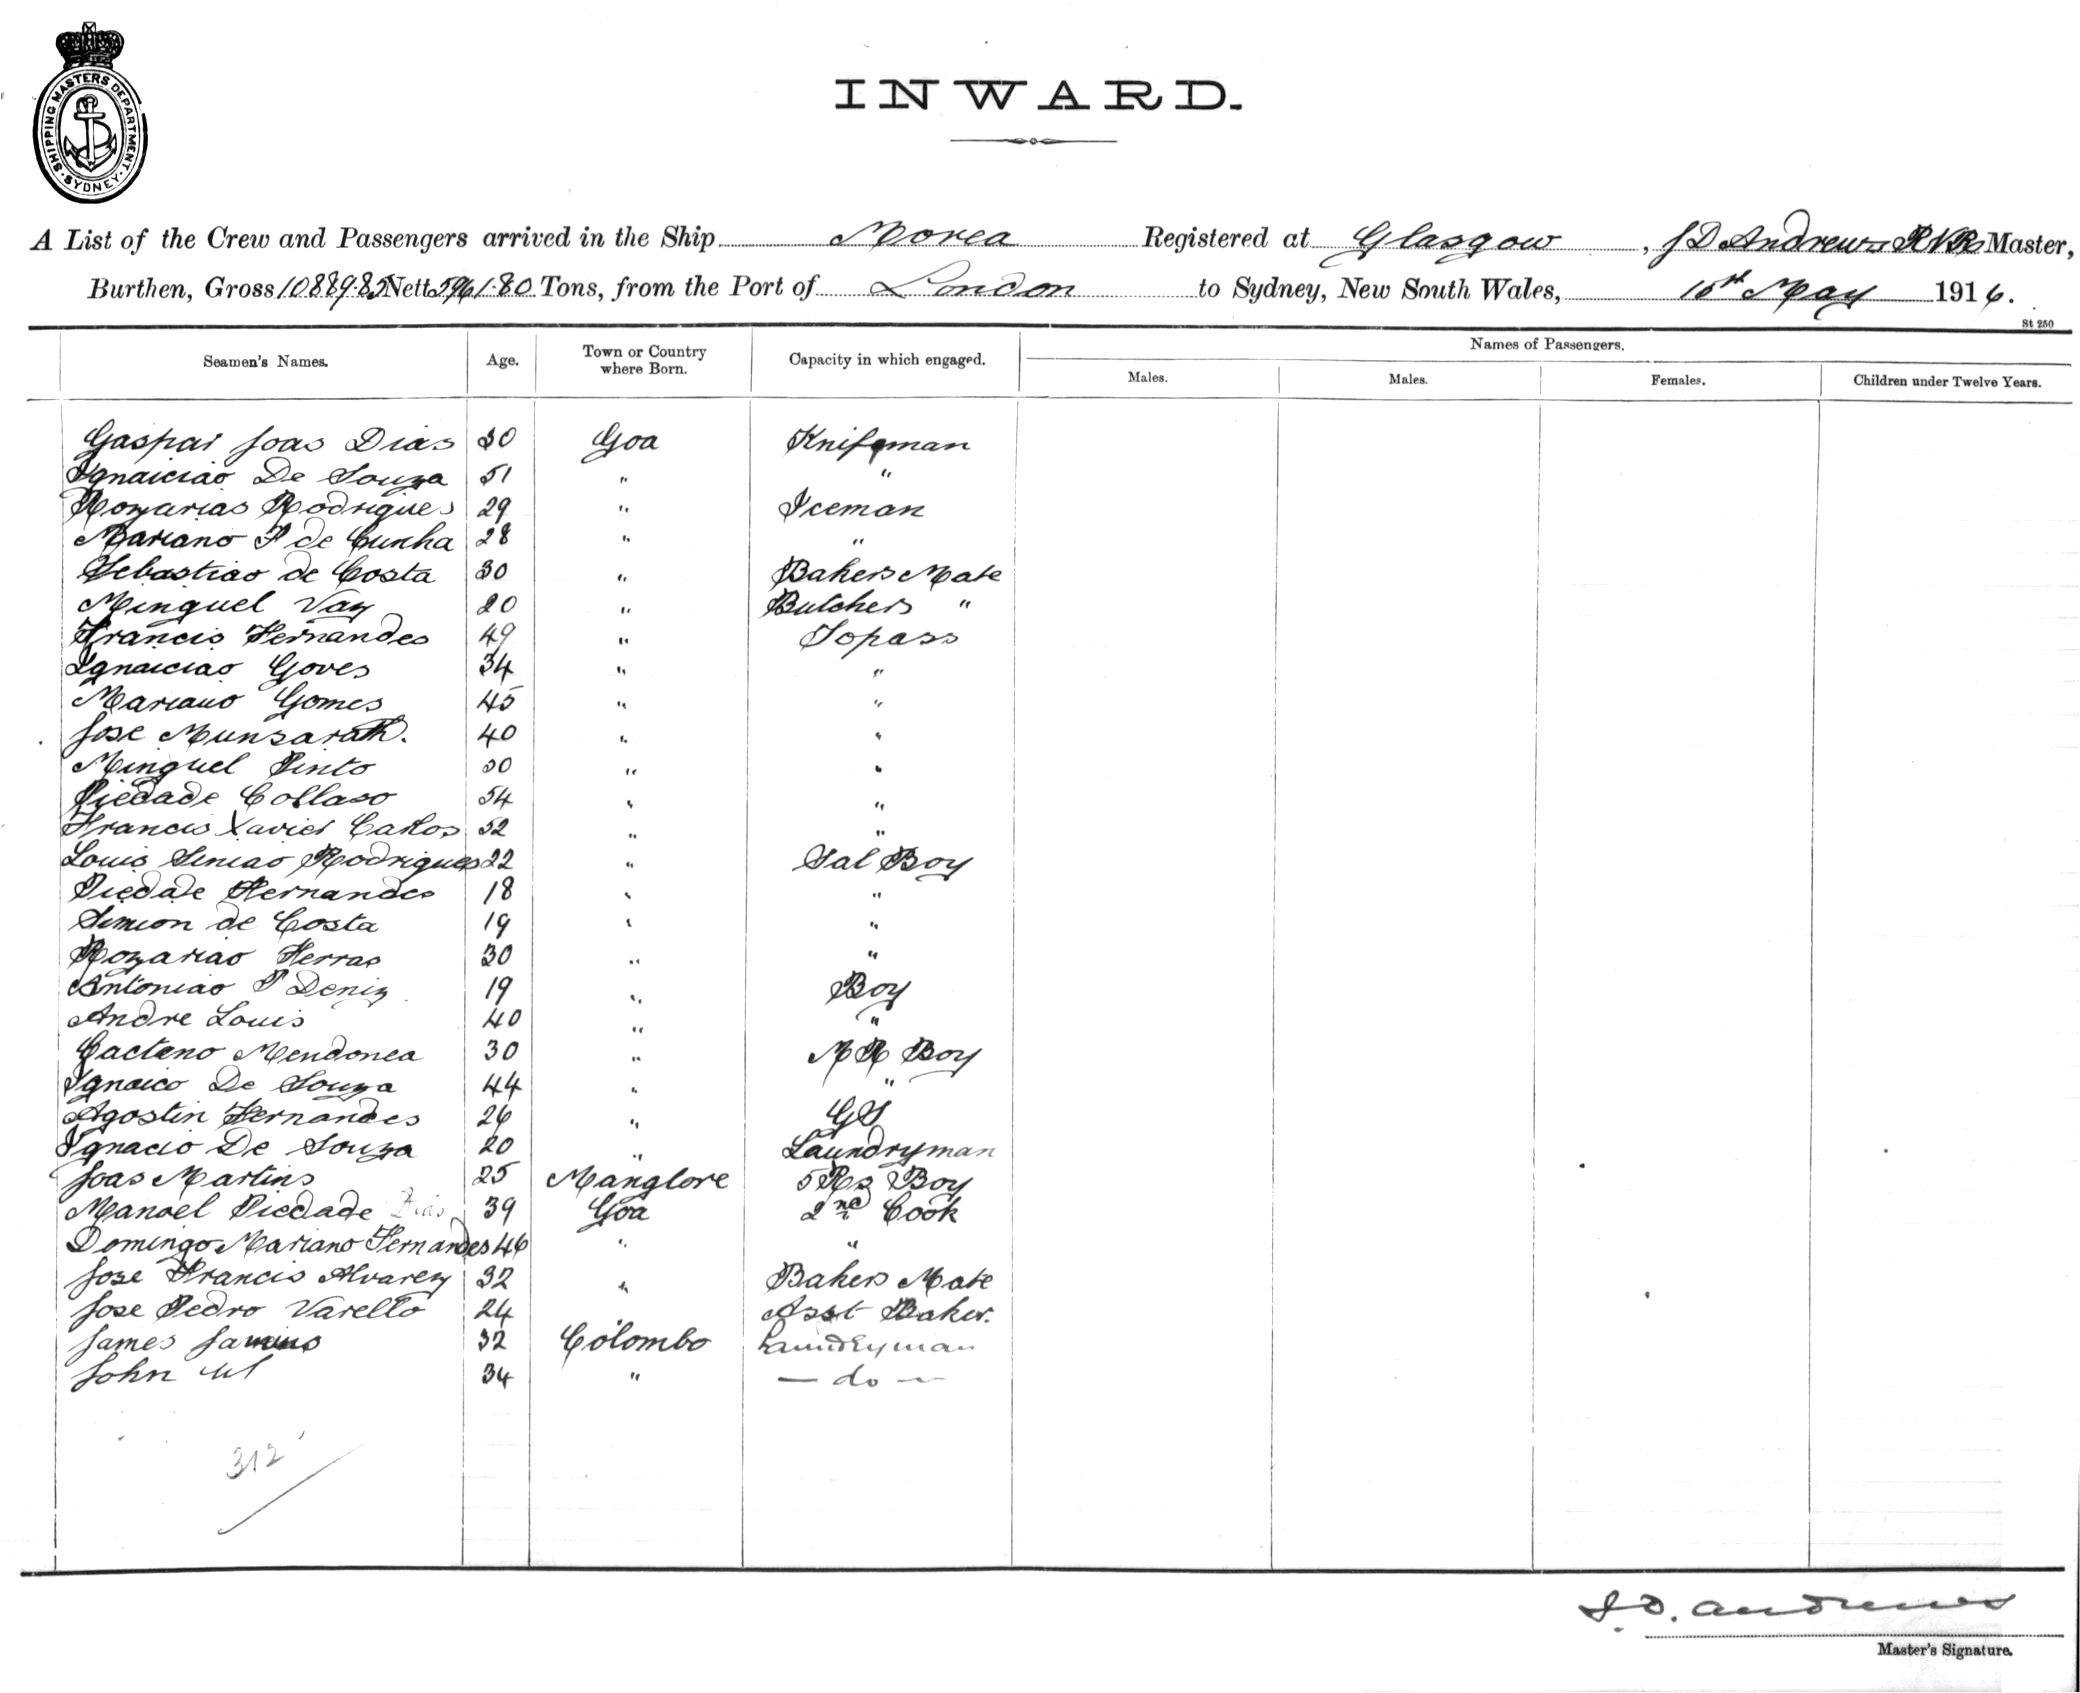 SHIPPING MASTERS DEPARTMENT. SYDNEY.
INWARD.
A List of the Crew and Passengers arrived in the Ship Morea Registered at Glasgow, J D Andrews R N R Master,
Burthen, Gross 10889.85 Nett 5961.80 Tons, from the Port of London to Sydney, New South Wales, May 1916.
St 250
Seamen's Names. Age. Town or Country where Born. Capacity in which engaged. Names of Passengers.
Males. Males. Females. Children under Twelve Years.
Gaspar Joas Dias 30 Goa Knifeman
Ignaiciao De Souza 51 " "
Rozarias Rodrigues 29 " Iceman
Mariano P de Cunha 28 " "
Sebastiao de Costa 30 " Bakers Mate
Minguel Vaz 20 " Butchers "
Francis Fernandes 49 " Topass
Ignaiciao Goves 34 " "
Mariano Gomes 45 " "
Jose Munsarath. 40 " "
Minguel Pinto 30 " "
Piedade Collaso 54 " "
Francis Xavier Carlos 52 " "
Louis Simao Rodrigues 22 " Sal Boy
Piedade Fernandes 18 " "
Simion de Costa 19 " "
Rozariao Ferrao 30 " "
Antoniao P Deniz 19 " Boy
Andre Louis 40 " "
Caetano Mendonca 30 " M R Boy
Ignaico De Souza 44 " "
Agostin Fernandes 26 " GS
Ignacio De Souza 20 " Laundryman
Joas Martins 25 Manglore 5 Rs Boy
Manoel Piedade Dias 39 Goa 2nd Cook
Domingo Mariano Fernandes 46 " "
Joze Francis Alvarez 32 " Bakers Mate
Jose Pedro Varello 24 Asst Baker.
James 32 Colombo Laundryman
John 34 " — do —
312
J.D. Andrews
Master's Signature.